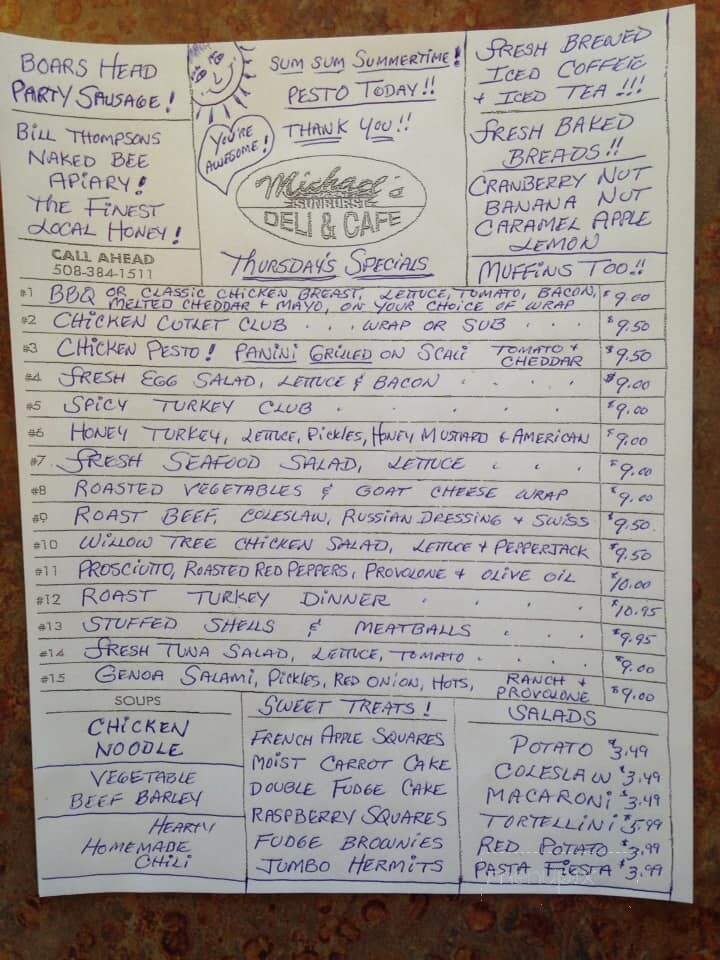 BOARS HEAD
PARTY SAUSAGE!
BILL THOMPSONS
NAKED BEE
APIARY!
THE FINEST
LOCAL HONEY!
CALL AHEAD
508-384-1511
SUM SUM SUMMERTIME!
PESTO TODAY!!
THANK YOU!!
YOU'RE
AWESOME!
Michael's
SUNBURST
DELI & CAFE
THURSDAY'S SPECIALS
FRESH BREWED
ICED COFFEE
+ ICED TEA!!!
FRESH BAKED
BREADS!!
CRANBERRY NUT
BANANA NUT
CARAMEL APPLE
LEMON
MUFFINS TOO!!
#1 BBQ OR CLASSIC CHICKEN BREAST, LETTUCE, TOMATO, BACON,
MELTED CHEDDAR + MAYO, ON YOUR CHOICE OF WRAP $9.00
#2 CHICKEN CUTLET CLUB . . . WRAP OR SUB . . . $9.50
#3 CHICKEN PESTO! PANINI GRILLED ON SCALI TOMATO + CHEDDAR $9.50
#4 FRESH EGG SALAD, LETTUCE & BACON . . . . $9.00
#5 SPICY TURKEY CLUB . . . . . . $9.00
#6 HONEY TURKEY, LETTUCE, PICKLES, HONEY MUSTARD & AMERICAN $9.00
#7 FRESH SEAFOOD SALAD, LETTUCE . . . $9.00
#8 ROASTED VEGETABLES & GOAT CHEESE WRAP $9.00
#9 ROAST BEEF, COLESLAW, RUSSIAN DRESSING + SWISS $9.50
#10 WILLOW TREE CHICKEN SALAD, LETTUCE + PEPPERJACK $9.50
#11 PROSCIUTTO, ROASTED RED PEPPERS, PROVOLONE + OLIVE OIL $10.00
#12 ROAST TURKEY DINNER . . . . $10.95
#13 STUFFED SHELLS & MEATBALLS . . . $9.95
#14 FRESH TUNA SALAD, LETTUCE, TOMATO . . . . $9.00
#15 GENOA SALAMI, PICKLES, RED ONION, HOTS, RANCH + PROVOLONE $9.00
SOUPS
CHICKEN
NOODLE
VEGETABLE
BEEF BARLEY
HEARTY
HOMEMADE
CHILI
SWEET TREATS!
FRENCH APPLE SQUARES
MOIST CARROT CAKE
DOUBLE FUDGE CAKE
RASPBERRY SQUARES
FUDGE BROWNIES
JUMBO HERMITS
SALADS
POTATO $3.49
COLESLAW $3.49
MACARONI $3.49
TORTELLINI $5.99
RED POTATO $3.99
PASTA FIESTA $3.99
menupix